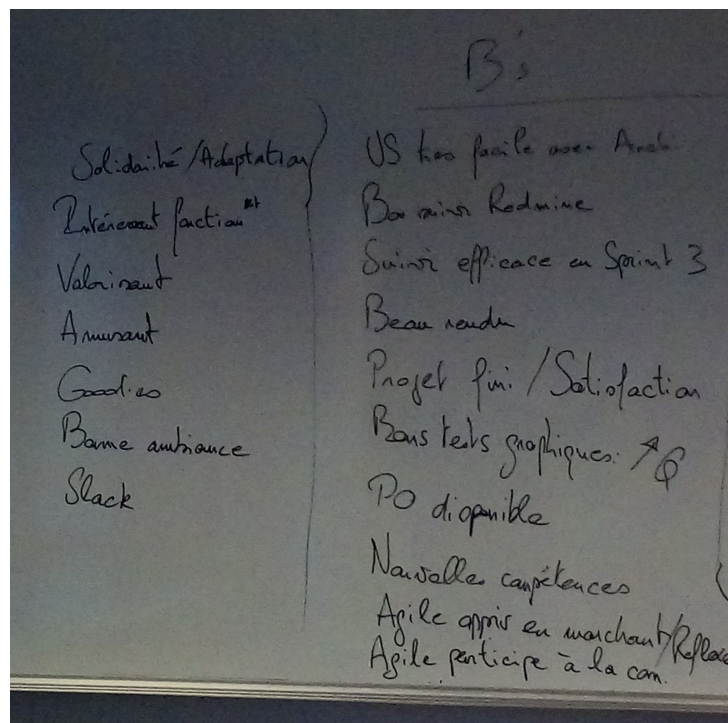 B's
Solidarité/Adaptation
Intéressant fonction
Valorisant
Amusant
Goodies
Bonne ambiance
Slack
US très facile avec
Bon suivi Redmine
Suivi efficace en Sprint 3
Beau rendu
Projet fini/Satisfaction
Bons tests graphiques. ↗Q
PO disponible
Nouvelles compétences
Agile appris en marchant/
Agile participe à la com.